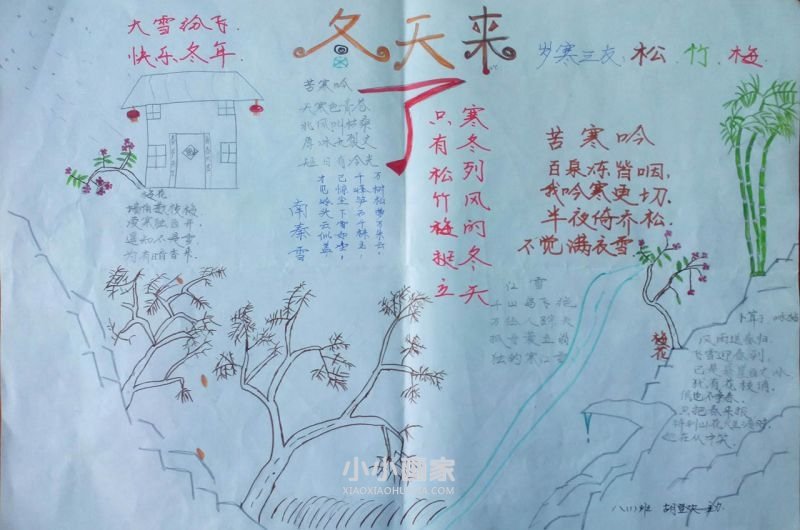 冬天来
了
大雪纷飞
快乐冬年
岁寒三友：松竹梅
苦寒吟
天寒色青苍
北风叫枯桑
厚冰无裂文
短日有冷光
南秦雪
才见岭头云似盖
已惊岩下雪如尘
千峰笋石千株玉
万树松萝万朵云
寒冬列风的冬天
只有松竹梅挺立
苦寒吟
百泉冻皆咽，
我吟寒更切，
半夜倚乔松，
不觉满衣雪。
梅花
墙角数枝梅
凌寒独自开
遥知不是雪
为有暗香来
江雪
千山鸟飞绝
万径人踪灭
孤舟蓑立翁
独钓寒江雪
梅花
卜算子 咏梅
风雨送春归，
飞雪迎春到，
已是悬崖百丈冰
犹有花枝俏，
俏也不争春，
只把春来报
待到山花烂漫时
她在丛中笑
小小画家
XIAOXIAOHUAJIA.COM